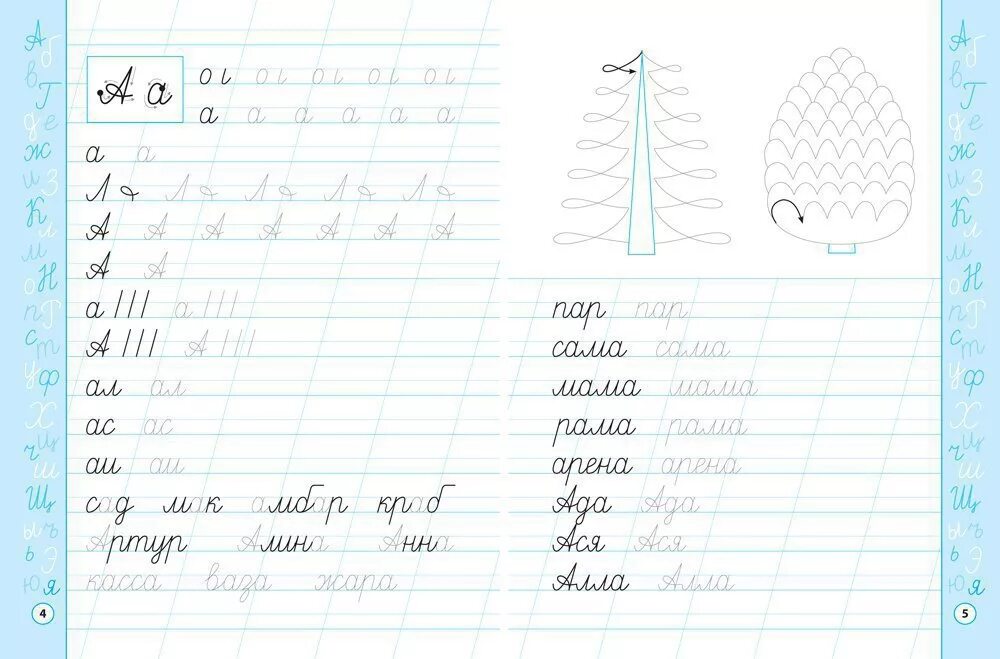 А
б
в
Г
д е
ж
и З
К
л
м
о Н
п Г
с
т
у ф
Х
ч ц
ш
Щ
ы ъ
ь Э
ю я
4
А а
оı оı оı оı оı
а а а а а а
а а
А А А А А А А
А А
а /// а ///
А /// А ///
ал ал
ас ас
аи аи
сад мак амбар краб
Артур Алина Анна
касса ваза жара
пар пар
сама сама
мама мама
рама рама
арена арена
Ада Ада
Ася Ася
Алла Алла
А
б
в
Г
д е
ж
и З
К
л
м
о Н
п Г
с
т
у ф
Х
ч ц
ш
Щ
ы ъ
ь Э
ю я
5